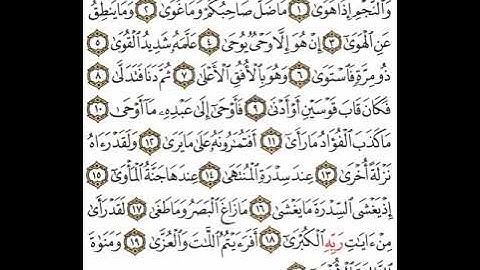 وَٱلنَّجۡمِ إِذَا هَوَىٰ ١ مَا ضَلَّ صَاحِبُكُمۡ وَمَا غَوَىٰ ٢ وَمَا يَنطِقُ
عَنِ ٱلۡهَوَىٰٓ ٣ إِنۡ هُوَ إِلَّا وَحۡيٞ يُوحَىٰ ٤ عَلَّمَهُۥ شَدِيدُ ٱلۡقُوَىٰ ٥
ذُو مِرَّةٖ فَٱسۡتَوَىٰ ٦ وَهُوَ بِٱلۡأُفُقِ ٱلۡأَعۡلَىٰ ٧ ثُمَّ دَنَا فَتَدَلَّىٰ ٨
فَكَانَ قَابَ قَوۡسَيۡنِ أَوۡ أَدۡنَىٰ ٩ فَأَوۡحَىٰٓ إِلَىٰ عَبۡدِهِۦ مَآ أَوۡحَىٰ ١٠
مَا كَذَبَ ٱلۡفُؤَادُ مَا رَأَىٰٓ ١١ أَفَتُمَٰرُونَهُۥ عَلَىٰ مَا يَرَىٰ ١٢ وَلَقَدۡ رَءَاهُ
نَزۡلَةً أُخۡرَىٰ ١٣ عِندَ سِدۡرَةِ ٱلۡمُنتَهَىٰ ١٤ عِندَهَا جَنَّةُ ٱلۡمَأۡوَىٰٓ ١٥
إِذۡ يَغۡشَى ٱلسِّدۡرَةَ مَا يَغۡشَىٰ ١٦ مَا زَاغَ ٱلۡبَصَرُ وَمَا طَغَىٰ ١٧ لَقَدۡ رَأَىٰ
مِنۡ ءَايَٰتِ رَبِّهِ ٱلۡكُبۡرَىٰٓ ١٨ أَفَرَءَيۡتُمُ ٱللَّٰتَ وَٱلۡعُزَّىٰ ١٩ وَمَنَوٰةَ